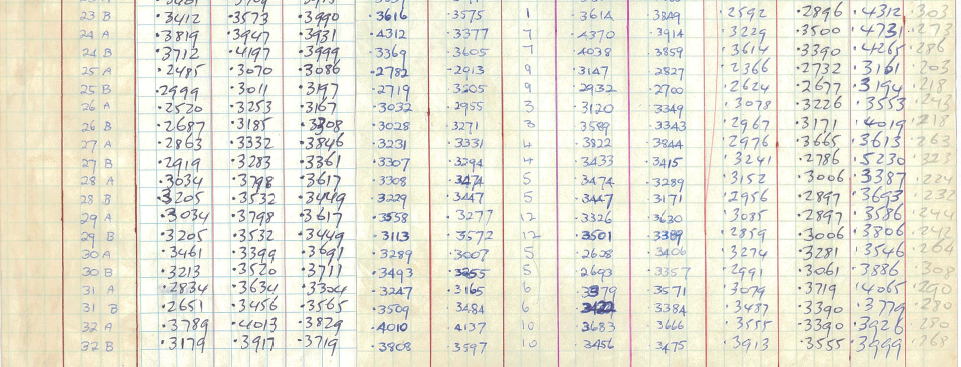 23 B .3412 .3573 .3990 .3616 .3575 1 .3614 .3849 .2592 .2896 .4312 .303
24 A .3819 .3947 .3931 .4312 .3377 7 .4370 .3914 .3229 .3500 .4731 .273
24 B .3712 .4197 .3999 .3369 .3605 7 .4038 .3859 .3614 .3390 .4265 .286
25 A .2485 .3070 .3086 .2782 .2913 9 .3147 .2827 .2366 .2732 .3161 .203
25 B .2999 .3011 .3197 .2719 .3205 9 .2932 .2700 .2624 .2677 .3194 .218
26 A .2520 .3253 .3167 .3032 .2955 3 .3120 .3349 .3078 .3226 .3553 .243
26 B .2687 .3185 .3308 .3028 .3271 3 .3589 .3343 .2967 .3171 .4019 .218
27 A .2863 .3332 .3846 .3231 .3331 4 .3822 .3844 .2976 .3665 .3613 .263
27 B .2919 .3283 .3361 .3307 .3294 4 .3433 .3415 .3241 .2786 .5230 .323
28 A .3034 .3798 .3617 .3308 .3474 5 .3474 .3289 .3152 .3006 .3387 .224
28 B .3205 .3532 .3449 .3229 .3447 5 .3447 .3171 .2956 .2897 .3693 .232
29 A .3034 .3798 .3617 .3558 .3277 12 .3326 .3630 .3085 .2897 .3586 .244
29 B .3205 .3532 .3449 .3113 .3572 12 .3501 .3389 .2859 .3006 .3806 .242
30 A .3461 .3399 .3691 .3289 .3007 5 .2608 .3406 .3274 .3281 .3546 .264
30 B .3213 .3520 .3711 .3493 .3255 5 .2693 .3357 .2991 .3061 .3886 .308
31 A .2834 .3634 .3304 .3247 .3165 6 .3379 .3571 .3079 .3719 .4065 .290
31 B .2651 .3456 .3565 .3509 .3484 6 .3384 .3487 .3390 .3779 .280
32 A .3789 .4013 .3829 .4010 .4137 10 .3683 .3666 .3555 .3390 .3926 .280
32 B .3179 .3917 .3719 .3808 .3597 10 .3456 .3475 .3913 .3555 .3999 .268